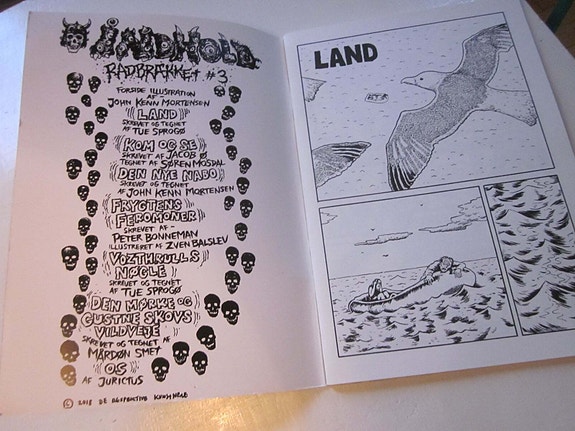 INDHOLD
RADBRÆKKET #3
FORSIDE ILLUSTRATION
AF
JOHN KENN MORTENSEN
LAND
SKREVET OG TEGNET
AF TUE SPROGØ
KOM OG SE
SKREVET AF JACOB Ø
TEGNET AF SØREN MOSDAL
DEN NYE NABO
SKREVET OG TEGNET
AF JOHN KENN MORTENSEN
FRYGTENS
FEROMONER
SKREVET AF -
PETER BONNEMAN
ILLUSTRERET AF ZVEN BALSLEV
VOZTHRULLS
NØGLE
SKREVET OG TEGNET
AF
TUE SPROGØ
DEN MØRKE OG
GUSTNE SKOVS
VILDVEJE
SKREVET OG TEGNET AF
MÅRDØN SMET
OS
AF JURICTUS
© 2018 DE RESPEKTIVE KUNSTNERE
LAND